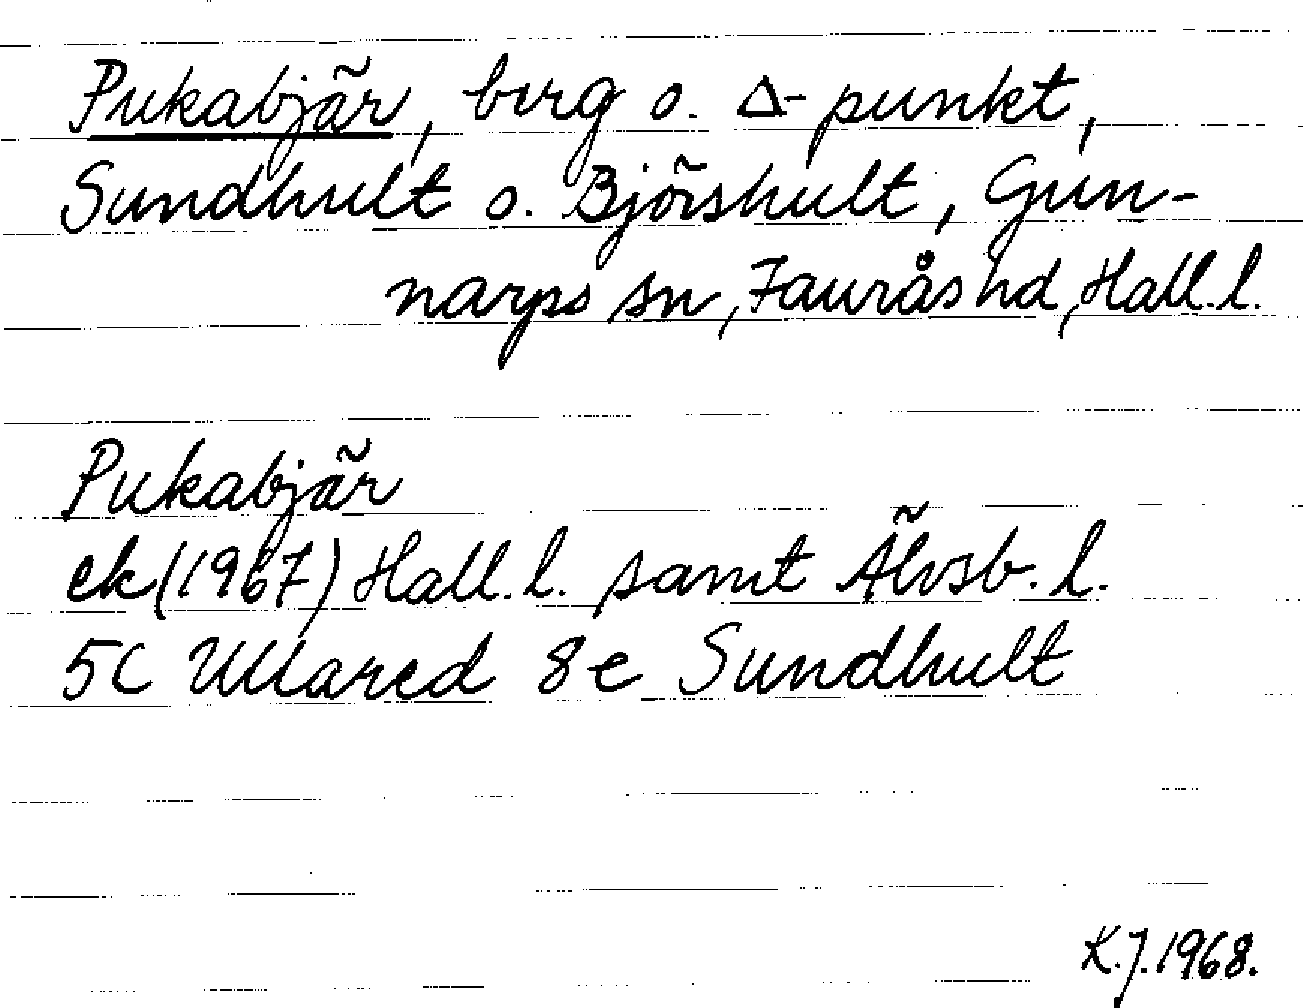 Pukabjär, berg o. Δ-punkt,
Sundhult o. Björshult, Gun-
narps sn, Faurås hd, Hall.l.
Pukabjär
ek(1967) Hall.l. samt Älvsb.l.
5C Ullared 8e Sundhult
K.J.1968.